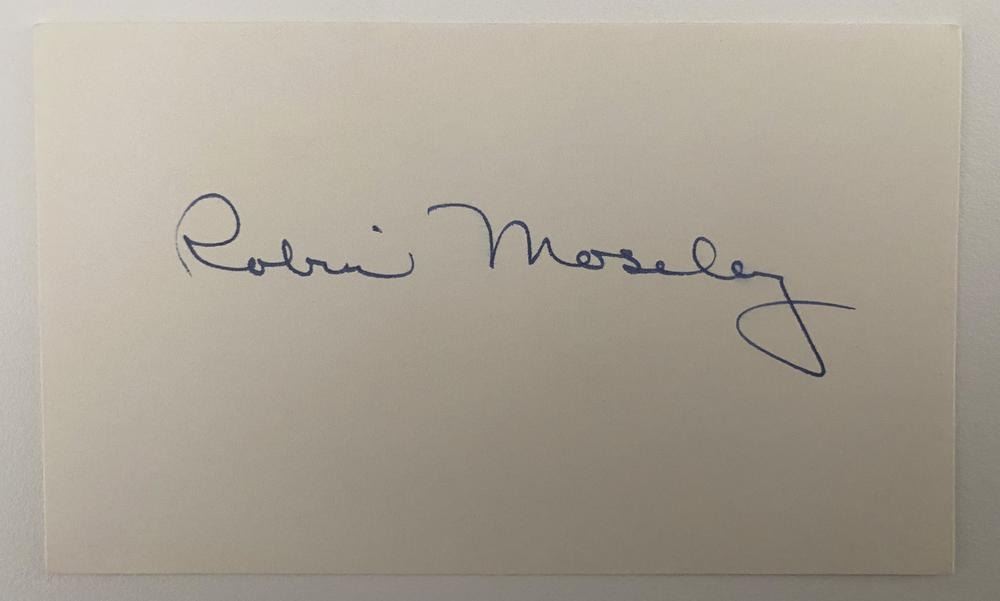 Robin Moseley